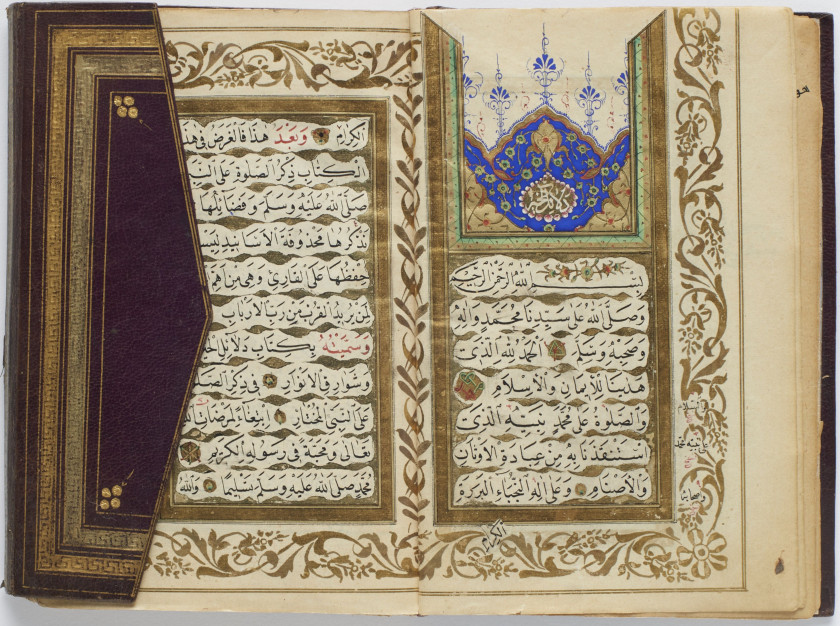 بسم الله الرحمن الرحيم
وصلى الله على سيدنا محمد وآله
وصحبه وسلم الحمد لله الذي
هدينا للإيمان والإسلام
والصلوة على محمد نبيه الذي
استنقذنا به من عبادة الأوثان
والأصنام وعلى آله النجباء البررة
الكرام
والسلام
على نبيه محمد
الكرام وبعد هذا فالغرض في هذا
الكتاب ذكر الصلوة على
صلى الله عليه وسلم وفضائلها
نذكرها محذوفة الأسانيد
حفظها على القارئ وهي من أهم
لمن يريد القرب من رب الأرباب
وسميته بكتاب دلائل
الأنوار ذكر
على النبي المختار ابتغاء لمرضات
تعالى ومحبة في رسوله الكريم
محمد صلى الله عليه وسلم تسليما والله